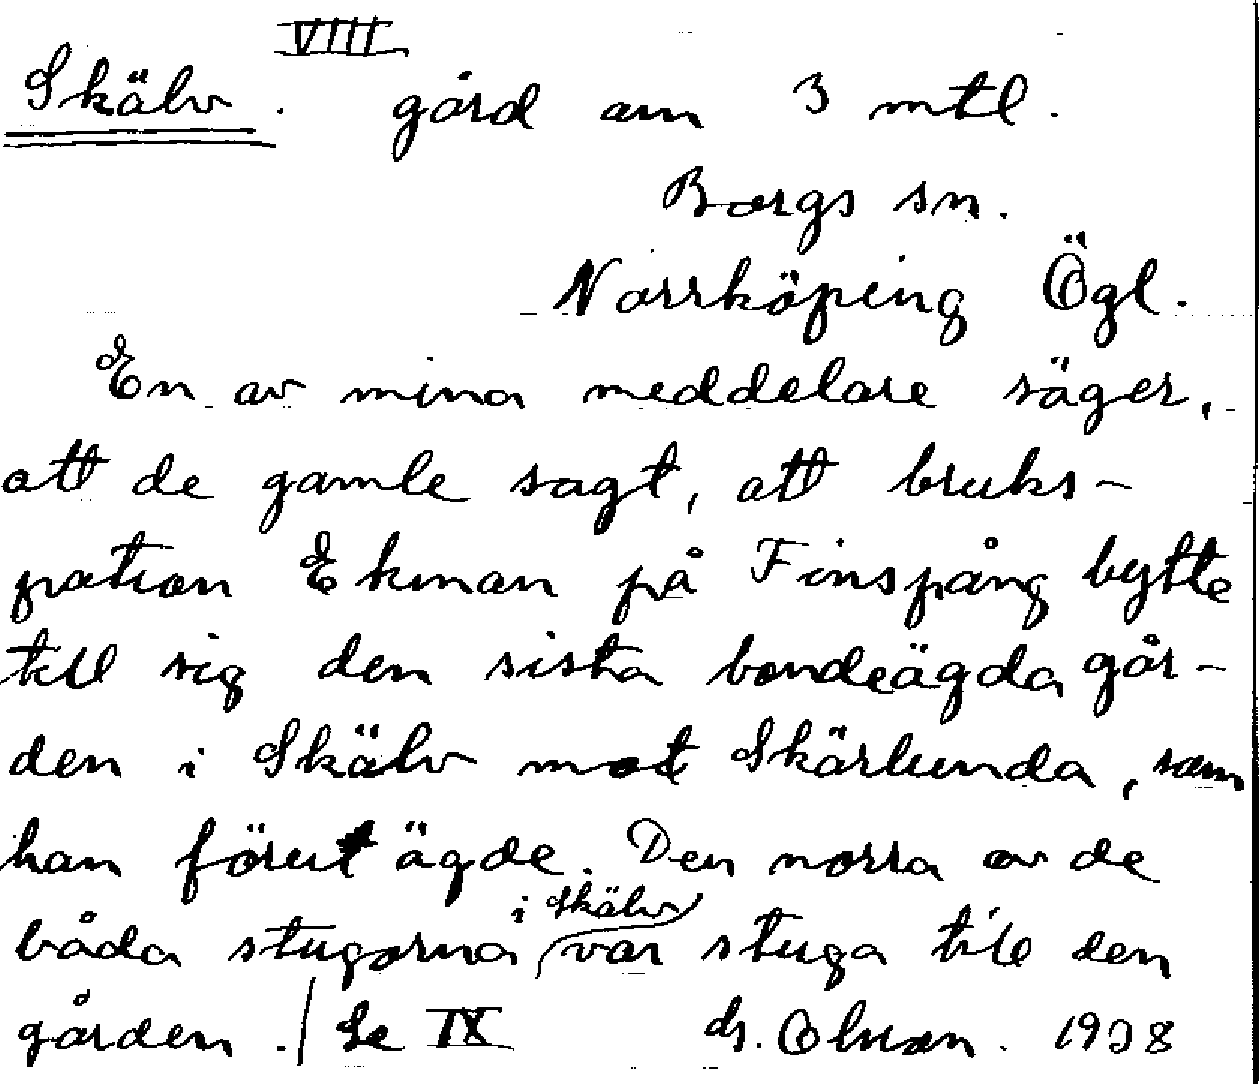 VIII
Skälv. gård om 3 mtl.
Borgs sn.
Norrköping Ögl.
En av mina meddelare säger,
att de gamle sagt, att bruks-
patron Ekman på Finspång bytte
till sig den sista bondeägda går-
den i Skälv mot Skärlunda, som
han förut ägde. Den norra av de
i Skälv
båda stugorna var stuga till den
gården./ Se IX Olson. 1938